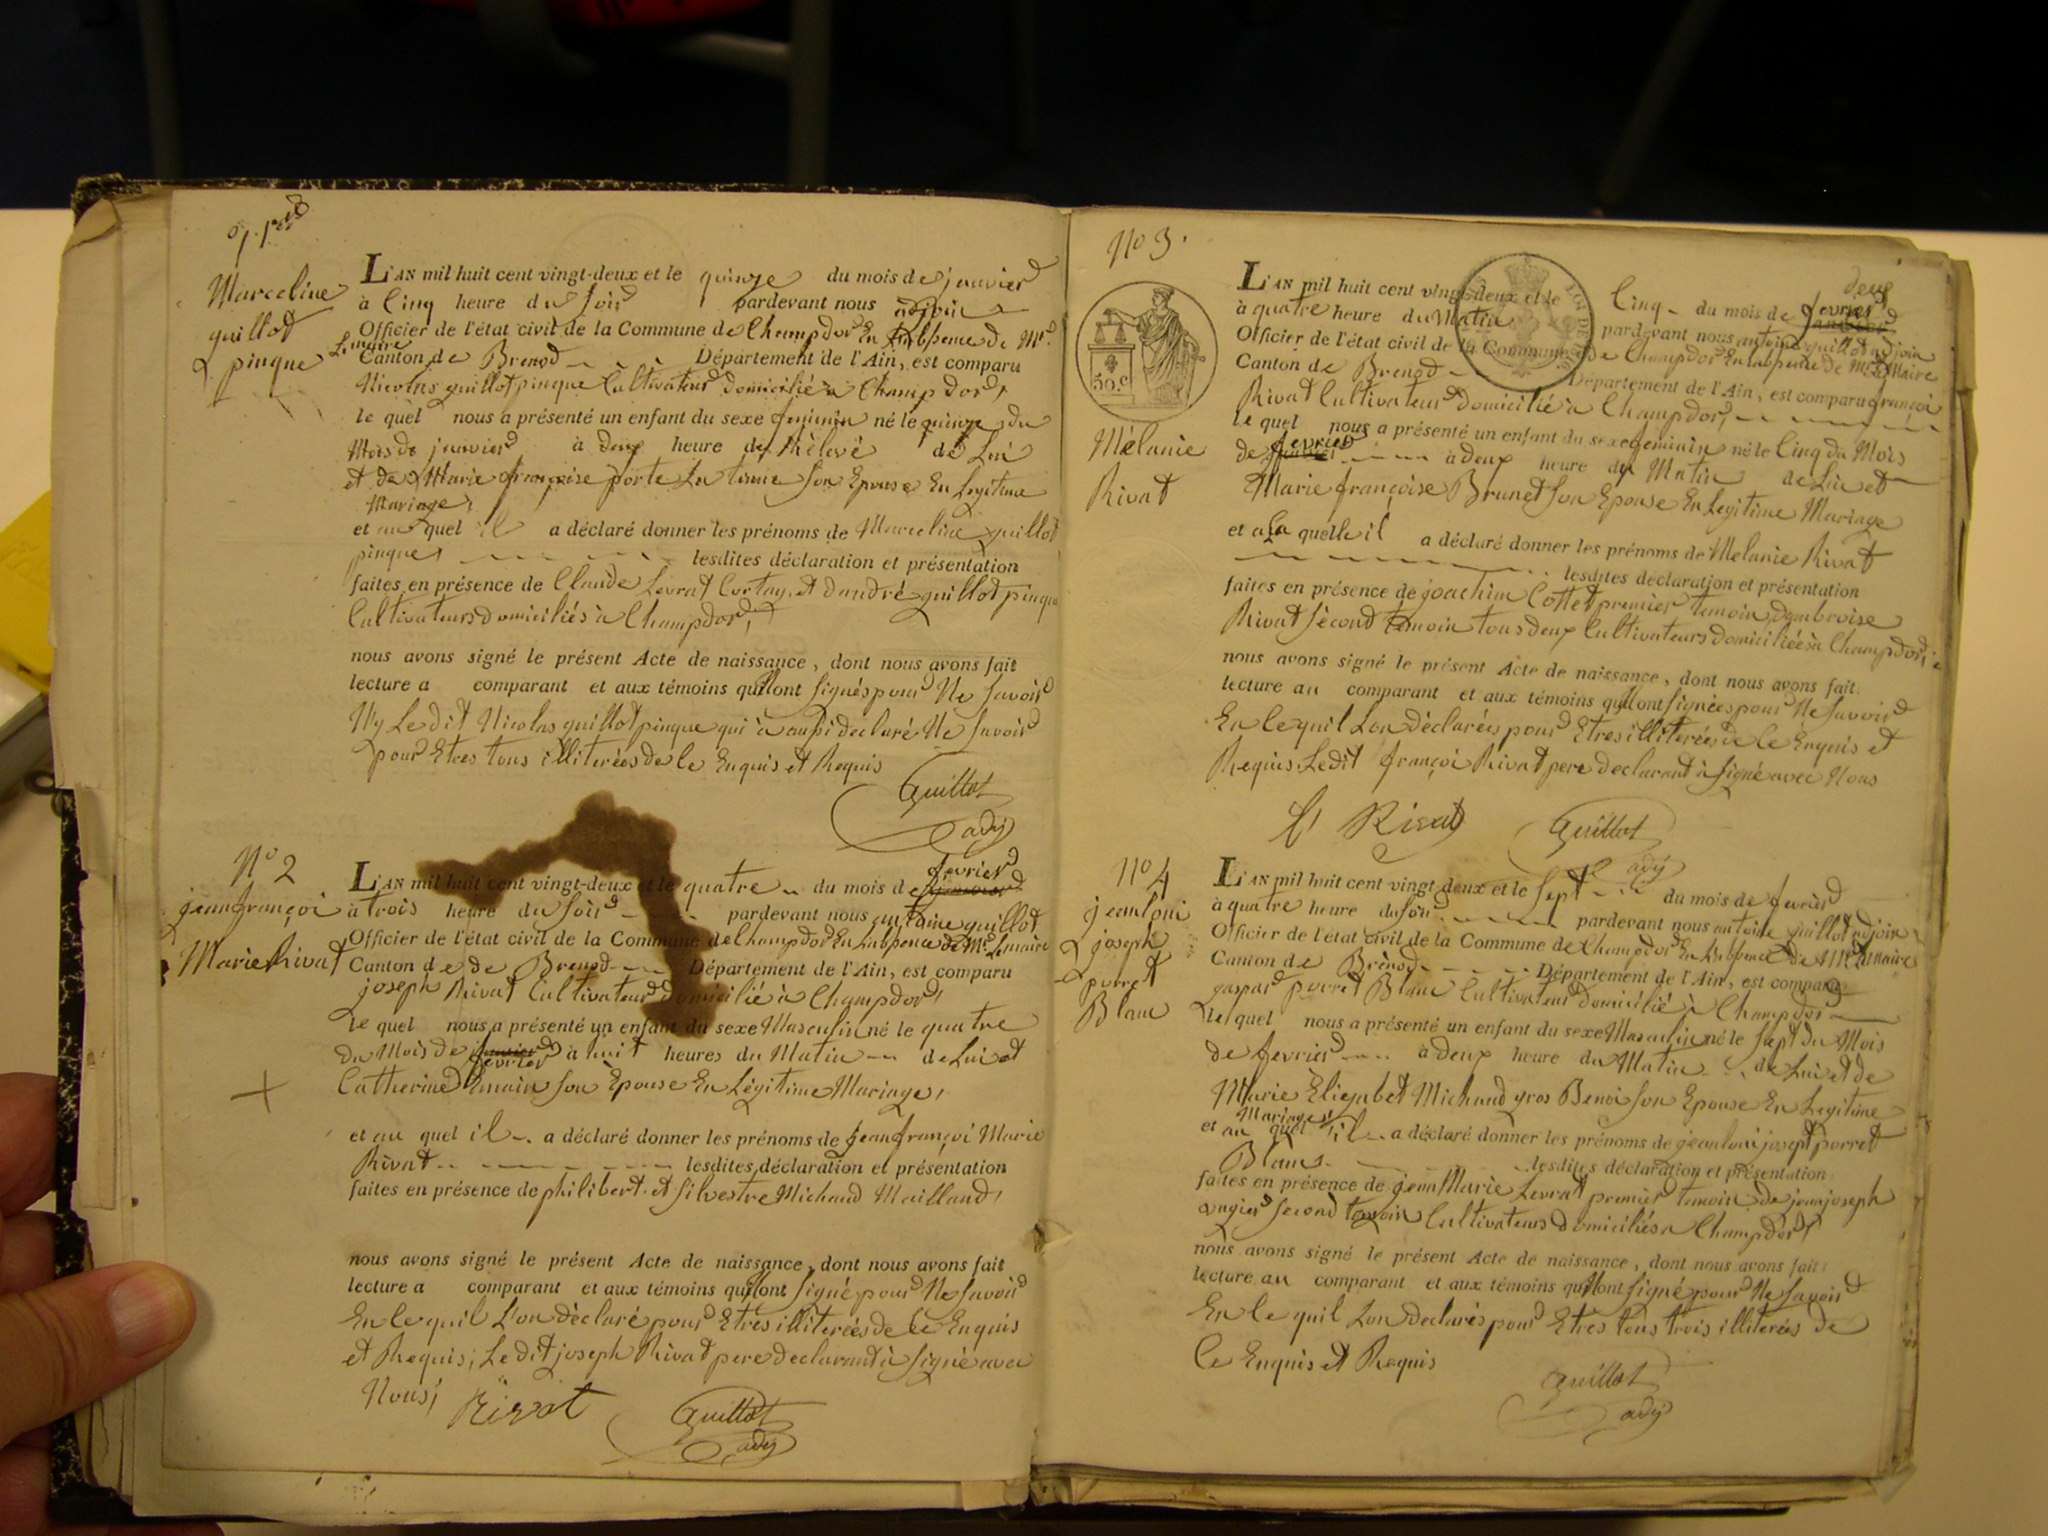 Marceline
guillot
pinque
L'AN mil huit cent vingt-deux et le quinze du mois de janvier
à Cinq heure du soir pardevant nous adjoin
Officier de l'état civil de la Commune de Champdor En Labsence de Mr.
Lemaire
Canton de Brenod Département de l'Ain, est comparu
Nicolas guillot pinque Cultivateur domicilié à Champdor,
le quel nous a présenté un enfant du sexe feminin né le quinze du
Mois de janvier à deux heure de de Lui
et de Marie françoise porte son Epouse En Legitime
Mariage,
et au quel il a déclaré donner les prénoms de Marceline guillot
pinque, lesdites déclaration et présentation
faites en présence de Claude Levrat Cortay, et dandré guillot pinque
Cultivateurs domiciliés à Champdor,
nous avons signé le présent Acte de naissance, dont nous avons fait
lecture a comparant et aux témoins quillont signés pour Ne savoir
Ny Le dit Nicolas guillot pinque qui à aussi declaré Ne savoir
pour Etres tous illiterées de le Enquis et Requis
Guillot
adj
No 2
jean françoi
Marie Rivat
L'AN mil huit cent vingt-deux et le quatre du mois de janvier fevrier
à trois heure du soir pardevant nous antoine guillot
Officier de l'état civil de la Commune de Champdor En Labsence de Mr Lemaire
Canton de de Brenod Département de l'Ain, est comparu
joseph Rivat Cultivateur domicilié à Champdor,
le quel nous a présenté un enfant du sexe Masculin né le quatre
du Mois de janvier fevrier à huit heures du Matin de Lui et
Catherine Emain son Epouse En Légitime Mariage,
et au quel il a déclaré donner les prénoms de jean françoi Marie
Rivat lesdites déclaration et présentation
faites en présence de philibert et Silvestre Michaud Mailland,
nous avons signé le présent Acte de naissance, dont nous avons fait
lecture a comparant et aux témoins quillont signé pour Ne savoir
En le quil L'on déclaré pour Etres illiterées de Ce Enquis
et Requis, Le dit joseph Rivat pere declarant à signé avec
Nous,
Rivat
Guillot
adj
No 3.
50.c
Mélanie
Rivat
L'AN mil huit cent vingt-deux et le Cinq du mois de janvier fevrier
à quatre heure du Matin pardevant nous antoine guillot adjoin
Officier de l'état civil de la Commune de Champdor En Labsence de Mr Le Maire
Canton de Brenod Département de l'Ain, est comparu françoi
Rivat Cultivateur domicilié à Champdor,
le quel nous a présenté un enfant du sexe feminin né le Cinq du Mois
de janvier fevrier à deux heure du Matin de Lui et
Marie françoise Brunet son Epouse En Legitime Mariage
et a la quelle il a déclaré donner les prénoms de Melanie Rivat
lesdites déclaration et présentation
faites en présence de joachim Cottet premier temoin dambroise
Rivat sécond temoin tous deux Cultivateurs domiciliés à Champdor,
nous avons signé le présent Acte de naissance, dont nous avons fait
lecture au comparant et aux témoins quillont signées pour Ne savoir
En le quil Lon déclarées pour Etres illiterées de le Enquis et
Requis, Le dit françoi Rivat pere declarant à signé avec Nous
Rivat
Guillot
adj
No 4
jean loui
joseph
porret
Blanc
L'AN mil huit cent vingt-deux et le sept du mois de fevrier
à quatre heure du soir pardevant nous antoine guillot adjoin
Officier de l'état civil de la Commune de Champdor En Labsence de Mr Lemaire
Canton de Brénod Département de l'Ain, est comparu
gaspar porret Blanc Cultivateur domicilié à Champdor
le quel nous a présenté un enfant du sexe Masculin né le sept du Mois
de fevrier à deux heure du Matin de Lui et de
Marie Elizabet Michaud gros Benoi son Epouse En Legitime
Mariage,
et au quel il a déclaré donner les prénoms de jean loui joseph porret
Blanc lesdites déclaration et présentation
faites en présence de jean Marie Levrat premier temoin de jean joseph
augier second temoin Cultivateurs domiciliés a Champdor,
nous avons signé le présent Acte de naissance, dont nous avons fait
lecture au comparant et aux témoins quillont signé pour Ne savoir
En le quil Lon declarés pour Etres tous trois illiterées de
Ce Enquis et Requis
Guillot
adj